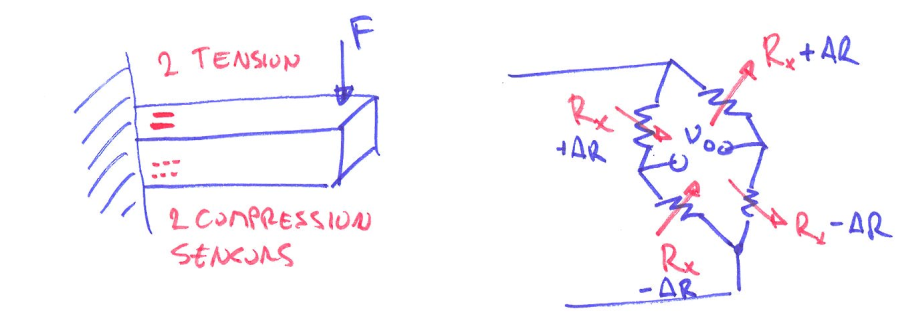 2 TENSION
F
2 COMPRESSION
SENSORS
Rx+ΔR
Rx
+ΔR
Vo
Rx-ΔR
Rx
-ΔR